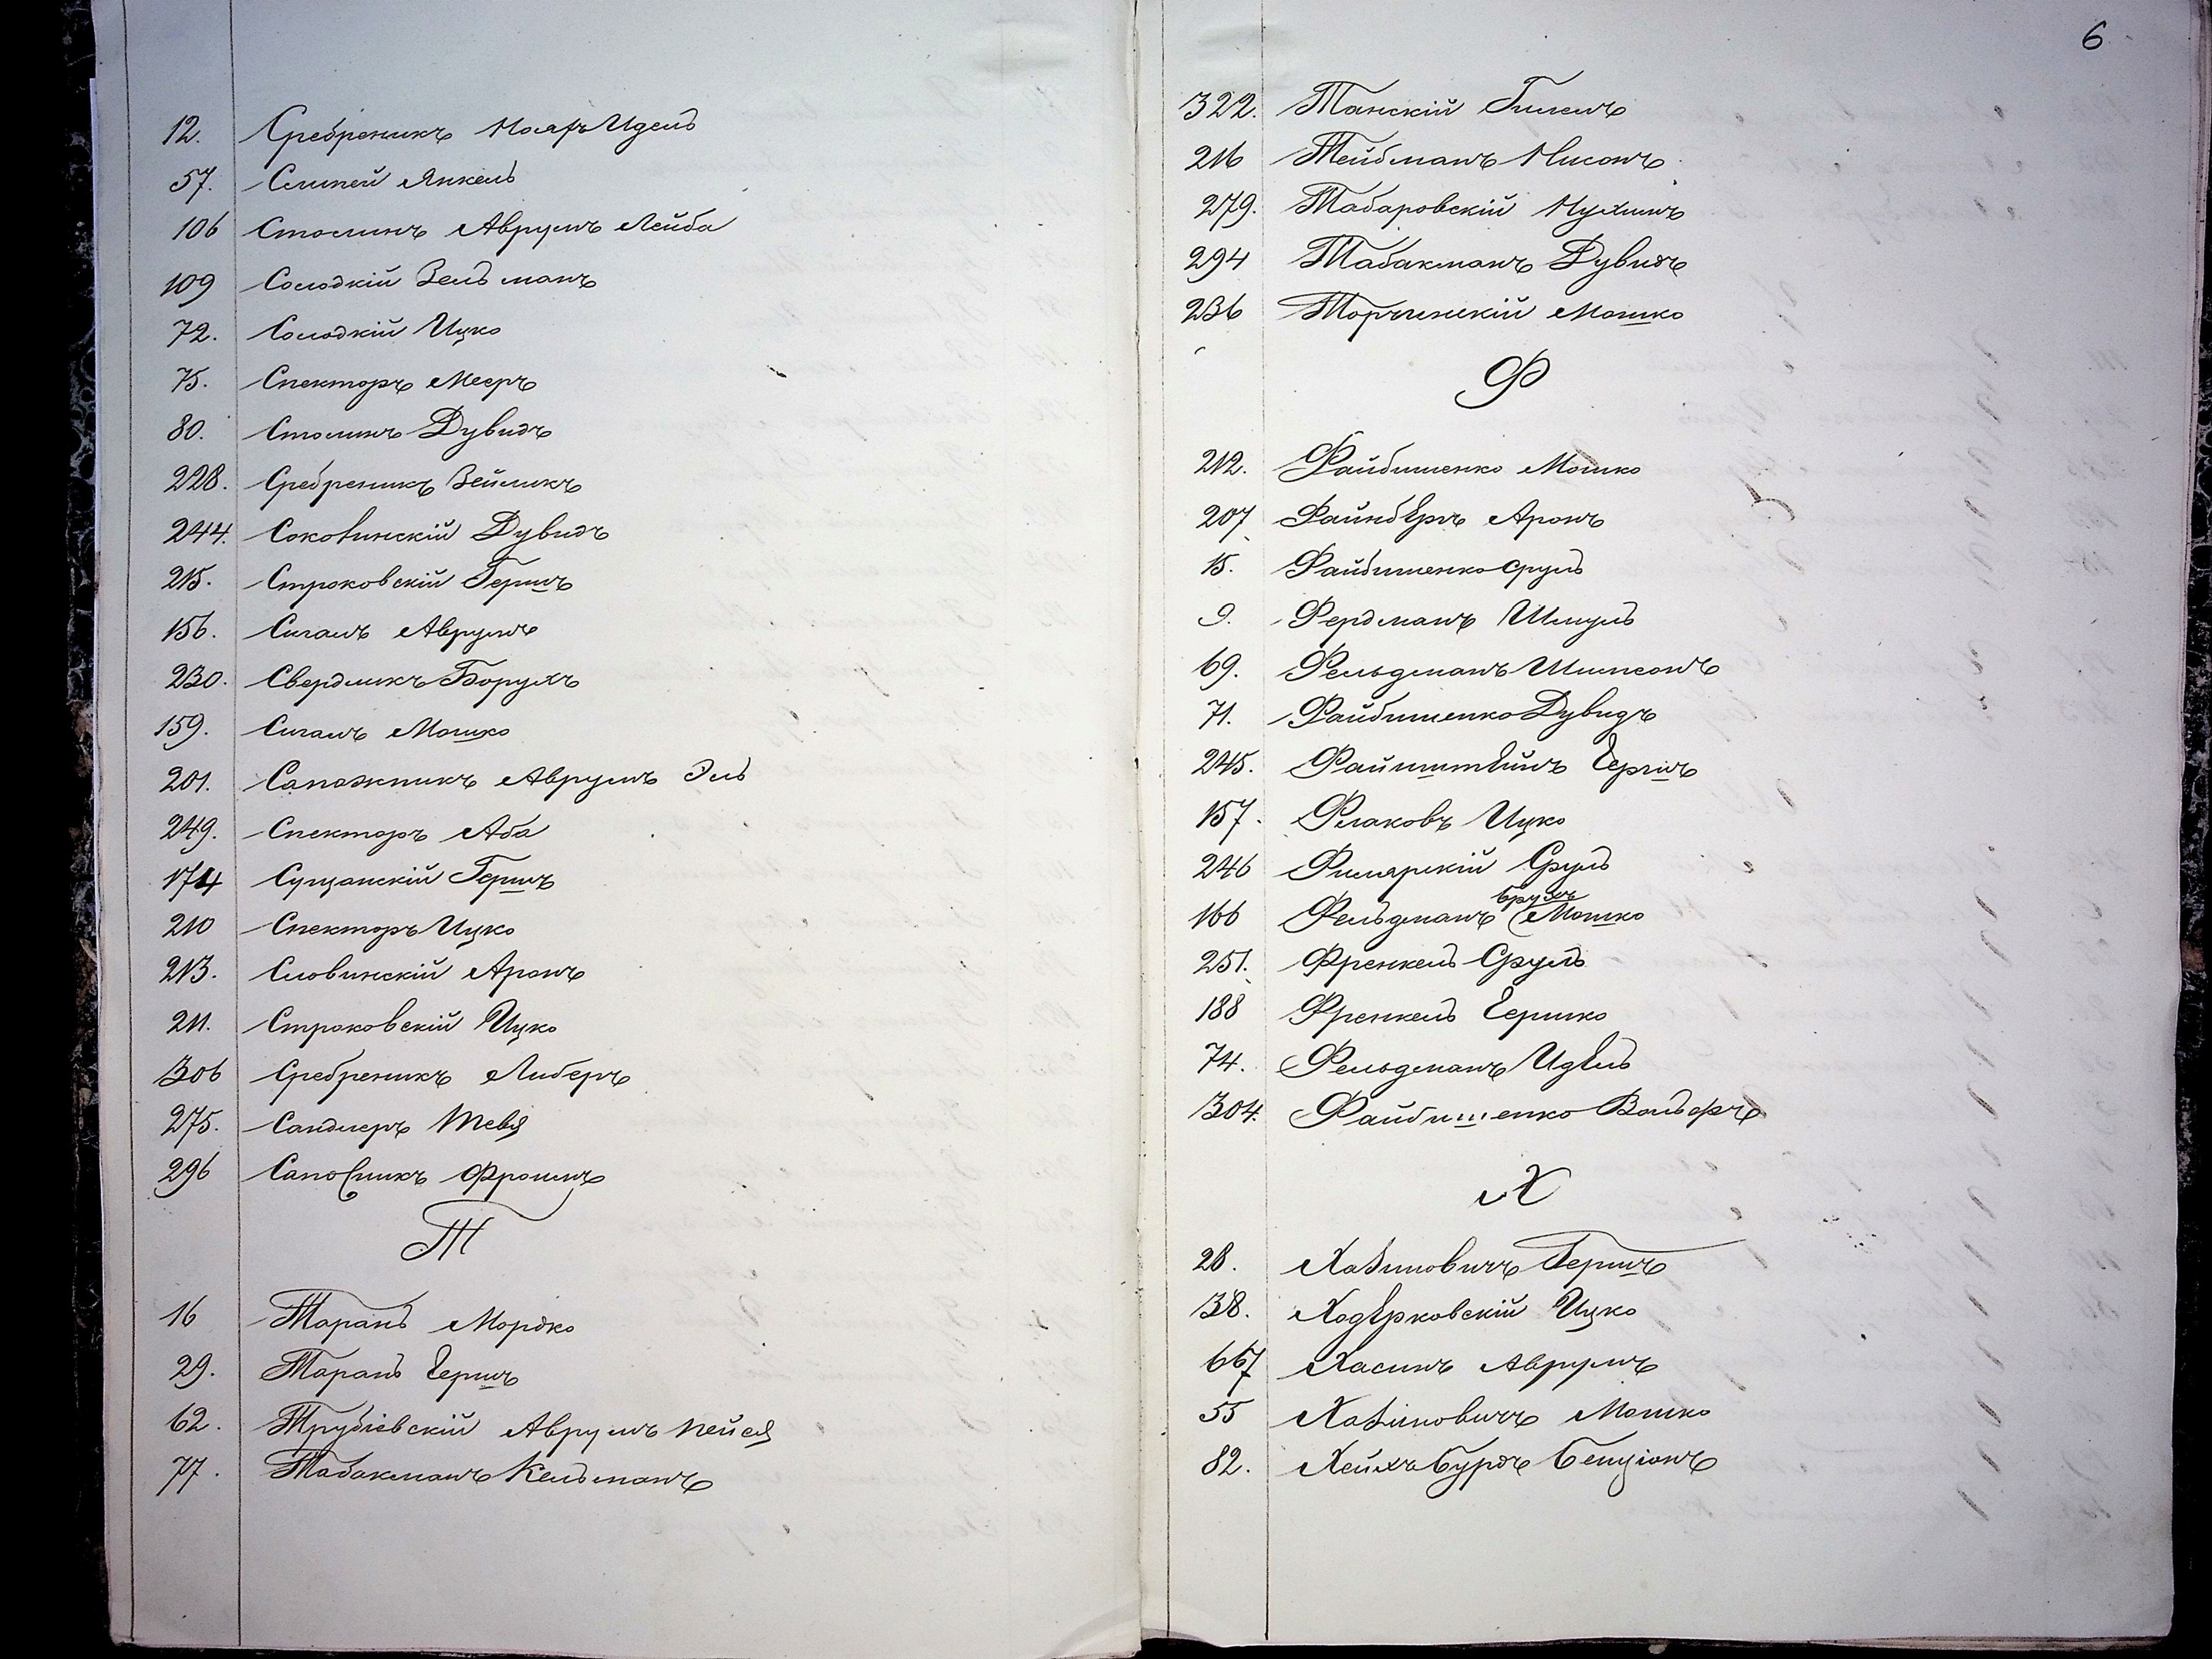 12. Сребреникъ Іосифъ Идель
57. Слипей Янкель
106 Столинъ Аврумъ Лейба
109 Солодкій Зельманъ
72. Солодкій Ицко
75. Спекторъ Мееръ
80. Столинъ Дувидъ
228. Сребреникъ Зейликъ
244. Соколинскій Дувидъ
215. Строковскій Гершъ
156. Сигалъ Аврумъ
230. Свердликъ Борухъ
159. Сигалъ Мошко
201. Сапожникъ Аврумъ Эль
249. Спекторъ Аба
174 Сущанскій Гершъ
210 Спекторъ Ицко
213. Словинскій Аронъ
211. Строковскій Ицко
306 Сребреникъ Либеръ
275. Сандлеръ Тевя
296 Сапожникъ Фроимъ
Т
16 Таранъ Мордко
29. Таранъ Гершъ
62. Трубіевскій Аврумъ Пейся
77. Табакманъ Кельманъ
6
322. Танскій Гилелъ
216 Тейбманъ Нисонъ
279. Табаровскій Нухимъ
294 Табакманъ Дувидъ
236 Торчинскій Мошко
Ф
212. Файбишенко Мошко
207 Файнбергъ Аронъ
15. Файбишенко Сруль
9. Фердманъ Шмуль
69. Фельдманъ Шимсонъ
71. Файбишенко Дувидъ
245. Файнштейнъ Гершъ
157. Флаковъ Ицко
246 Фимярскій Сруль
166 Фельдманъ Борухъ Мошко
251. Френкель Сруль
188 Френкель Гершко
74. Фельдманъ Идель
304. Файбишенко Вольфъ
Х
28. Хазиновичъ Гершъ
38. Ходерковскій Ицко
667 Хасинъ Аврумъ
55 Хазиновичъ Мошко
82. Хейхъбурдъ Бенціонъ